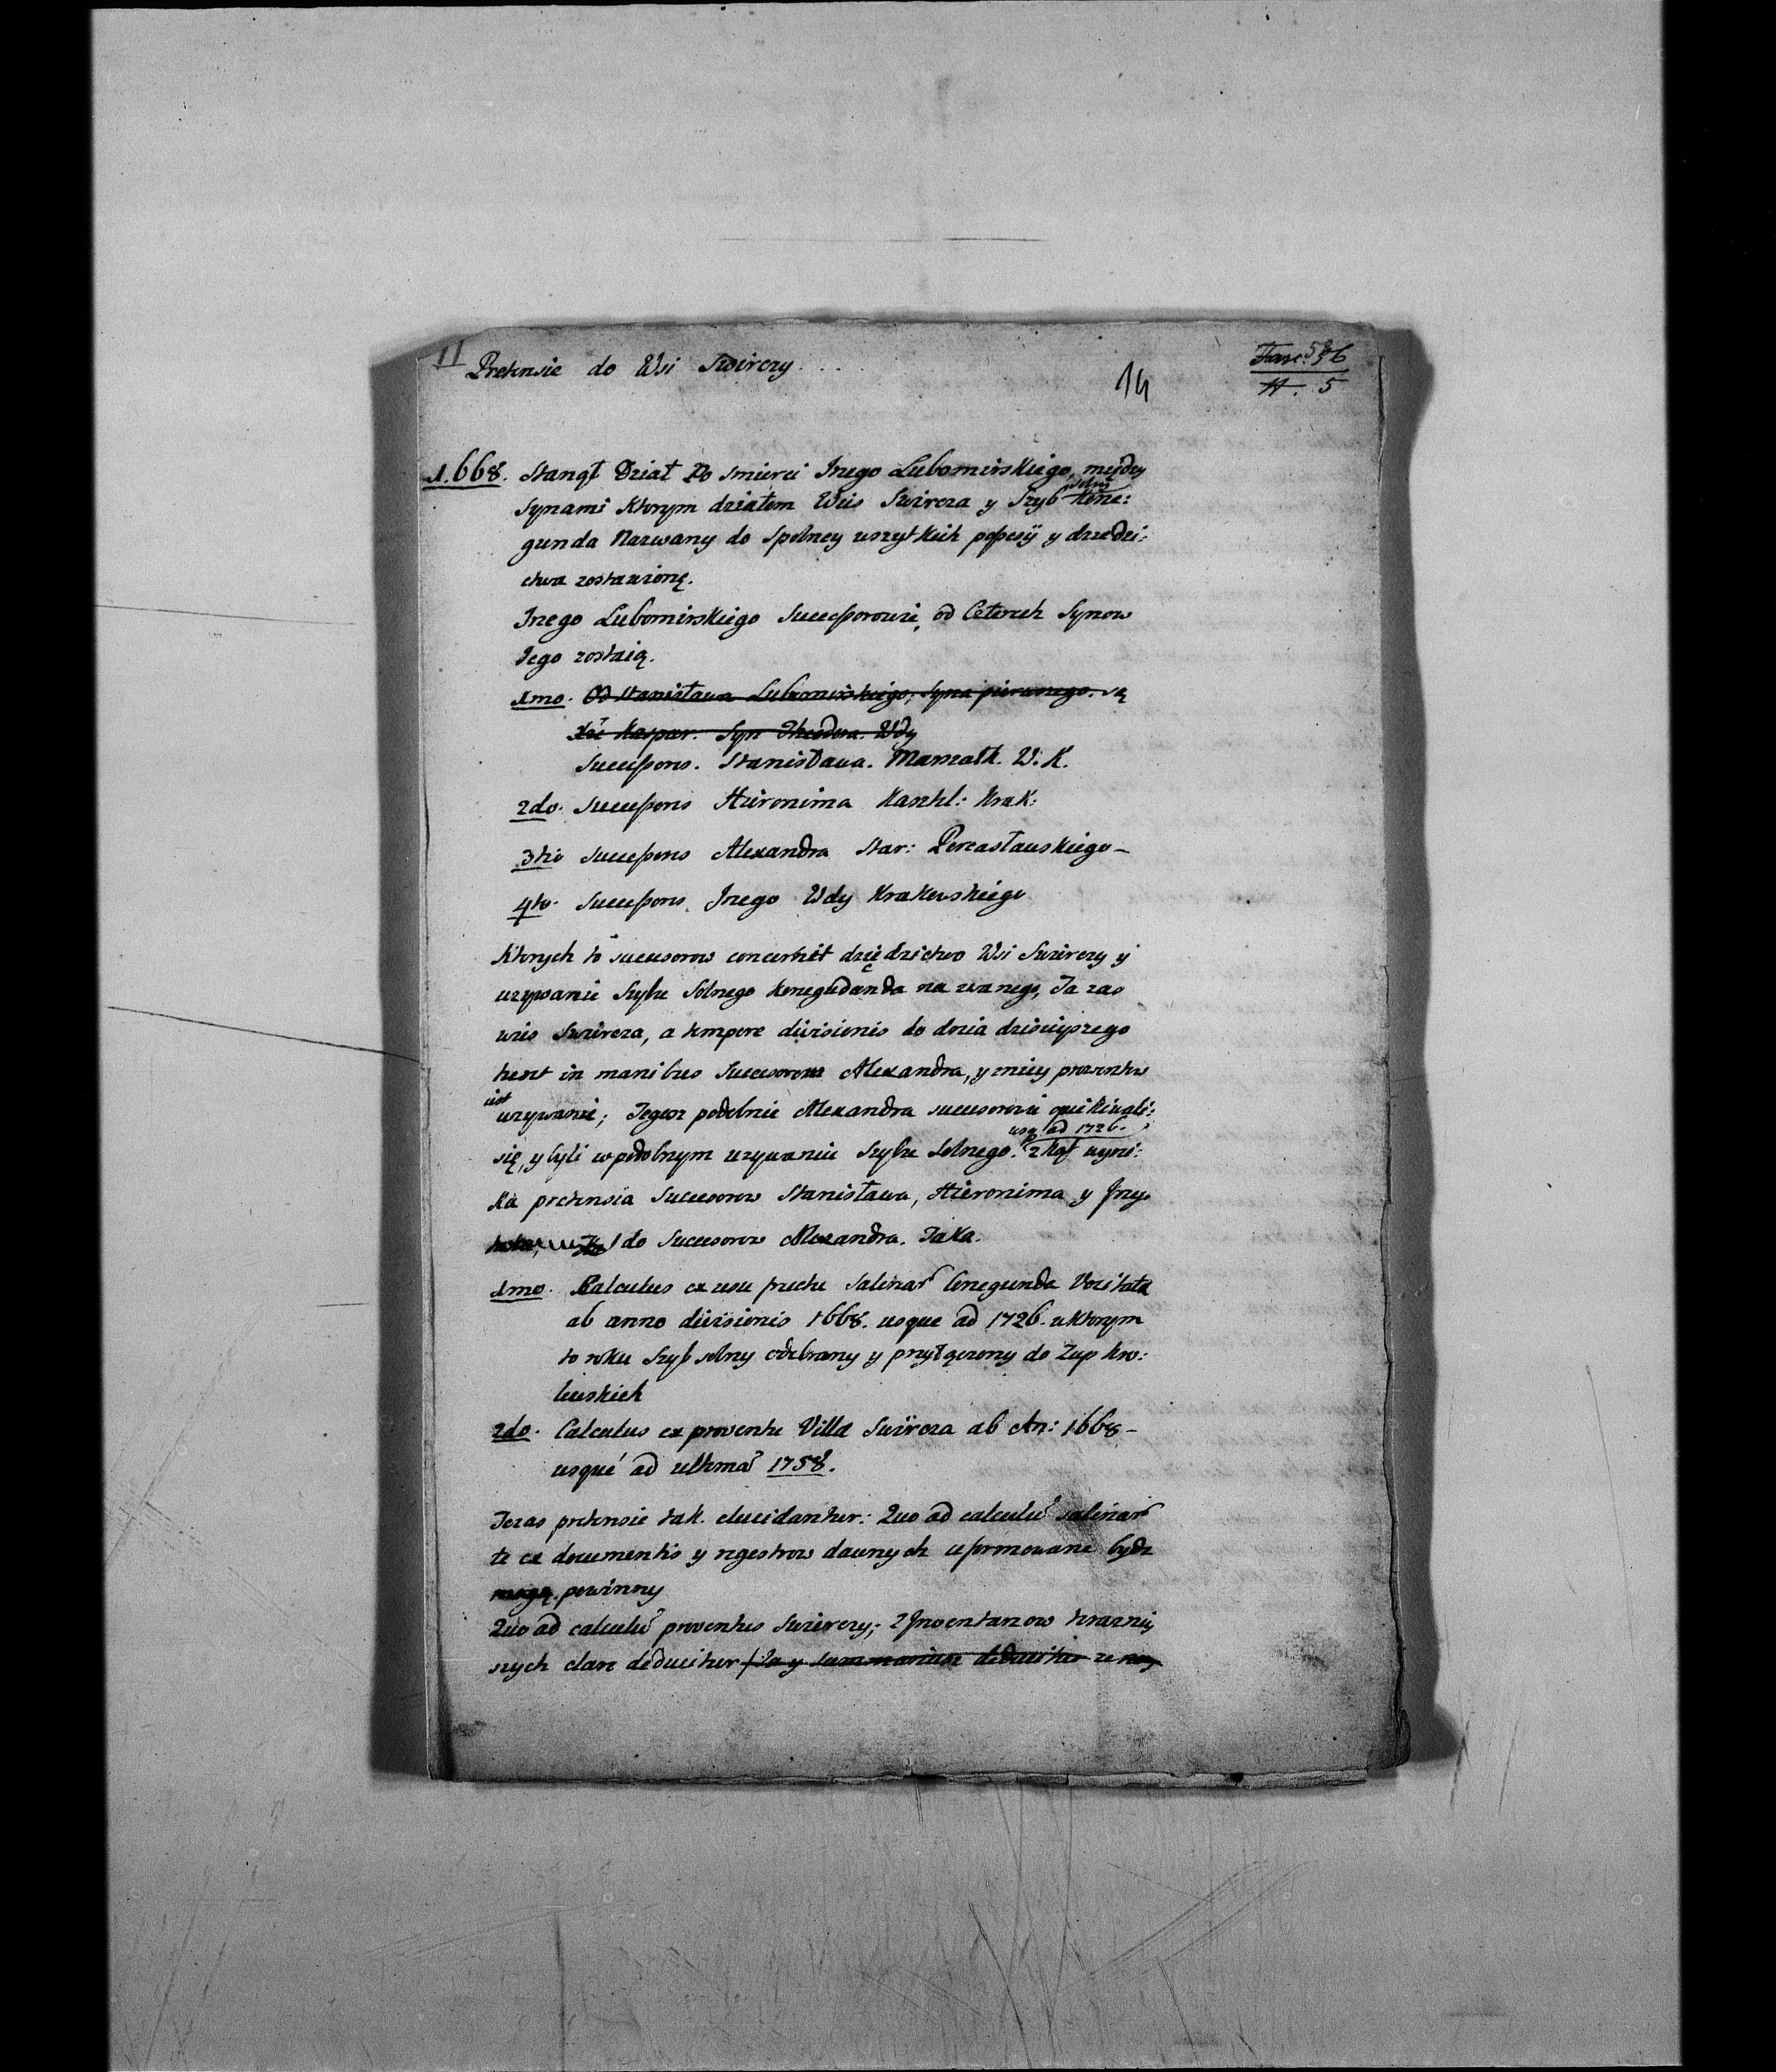 11
Pretensie do Wsi Swirczy . . .
14
Fasc: 586
N. 5
1.668. Stanął Dział Po Smierci Jrzego Lubomirskiego, między
solny
Synami Ktorym działem Wies Swircza y Szyb Kone:
gunda Nazwany do Spolney wszytkich possesÿi y dziedzi:
ctwa zostawioną.
Jrzego Lubomirskiego Successorowie, od Czterech Synow
Jego zostaią.
1mo. Od Stanisława Lubomirskiego, Syna pierwszego. są
Xże Kasper. Syn Theodora. Wdy
Successors. Stanisława. Marszałk. W. K.
2do. Successors Hieronima Kasztel: Krak:
3tio Successors Alexandra Star: Pereasławskiego –
4to. Successors Jrzego Wdy Krakowskiego
Ktorych to sucesorow concernit dziedzictwo Wsi Swirczy y
uzywanie Szybu Solnego Konegudanda nazwanego, Ta zas
wies Swircza, a tempore divisionis do dnia dzisieyszego
hest in manibus Sucesorow Alexandra, y zniey prowentow
iest
uzywanie; Tegoz podobnie Alexandra sucesorowie opiekiwali:
usq ad 1726.
się, y byli w podobnym uzywaniu Szybu Solnego. zkąd wyni:
ka pretensia Sucesorow Stanisława, Hieronima y Jrzy
do Sucesorow Alexandra. Taka.
1mo. Calculus ex usu putei Salinar Conegunda Vocitata
ab anno divisionis 1668. usque ad 1726. w Ktorym
to roku Szyb solny odebrany y przyłączony do Zup kro:
lewskich
2do. Calculus ex proventu Villa Swircza ab An: 1668 –
usqué ad ultima 1758.
Teras pretensie tak. elucidantur: Quo ad calculu salinar
te ex documentis y regestrow dawnych uformowane bydz
mogą. powinny
Quo ad calculu proventus Swirczy; z Jnwentarzow teraznie
szych clare deducitur Ta y summarium deducitur ze